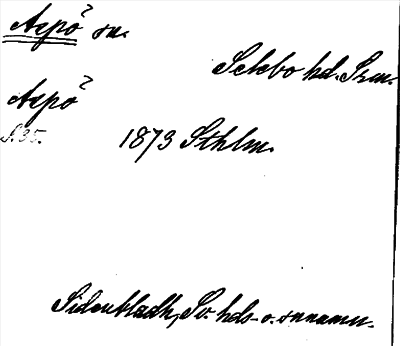 Aspö? sn.
Selebo hd. Srm.
Aspö?
S. 35. 1873 Sthlm.
Sidenbladh, Sv. hds- o. snnamn.